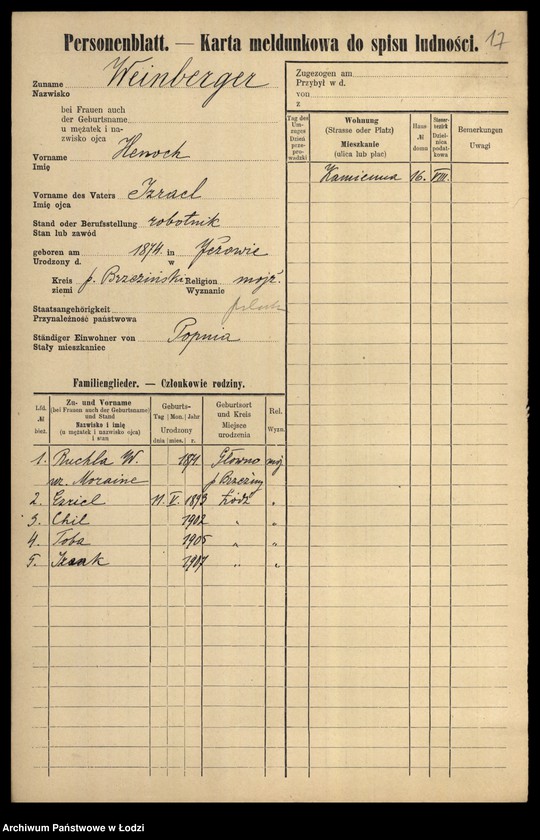 Personenblatt. — Karta meldunkowa do spisu ludności. 17
Zuname Weinberger
Nazwisko
bei Frauen auch
der Geburtsname
u mężatek i na-
zwisko ojca
Vorname Henoch
Imię
Vorname des Vaters Izrael
Imię ojca
Stand oder Berufsstellung robotnik
Stan lub zawód
geboren am 1874. in Jeżowie
Urodzony d. w
Kreis p. Brzeziński Religion mojż.
ziemi Wyznanie
Staatsangehörigkeit
Przynależność państwowa
Ständiger Einwohner von Popnia
Stały mieszkaniec
Zugezogen am
Przybył w d.
von
z
Tag des Um-zuges Dzień prze-prowadzki
Wohnung (Strasse oder Platz) Mieszkanie (ulica lub plac)
Haus № domu
Steuer-bezirk Dziel-nica podat-kowa
Bemerkungen Uwagi
Kamienna 16. VIII.
Familienglieder. — Członkowie rodziny.
Lfd. № bież.
Zu- und Vorname (bei Frauen auch der Geburtsname) und Stand Nazwisko i imię (u mężatek i nazwisko ojca) i stan
Geburts- Tag Mon. Jahr Urodzony dnia mies. r.
Geburtsort und Kreis Miejsce urodzenia
Rel. Wyzn.
1. Ruchla W. 1871. Głowno moj
p Brzeziny
2. Ezriel 11. V. 1893 Łódź "
3. Chil 1902 " "
4. Toba 1905 " "
5. Izaak 1907 " "
Archiwum Państwowe w Łodzi